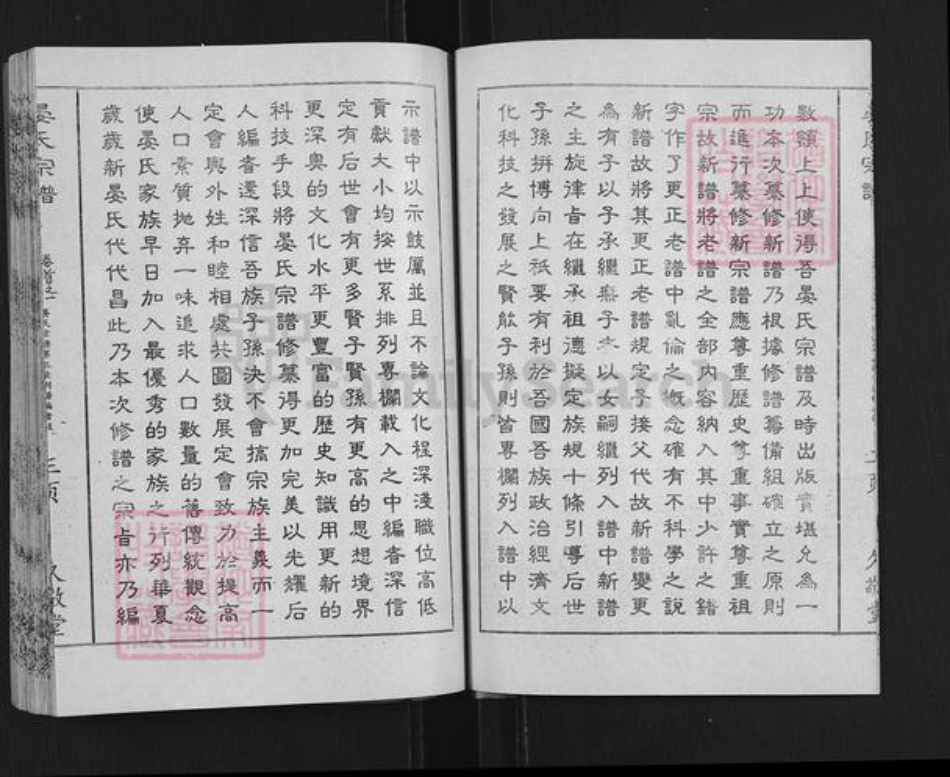 數額上上使得吾晏氏宗譜及時出版實堪允為一
功本次纂修新譜乃根據修譜籌備組確立之原則
而進行纂修新宗譜應尊重歷史尊重事實尊重祖
宗故新譜將老譜之全部內容納入其中少許之錯
字作了更正老譜中亂倫之概念確有不科學之說
新譜故將其更正老譜規定子接父代故新譜變更
為有子以子承繼無子以女嗣繼列入譜中新譜
之主旋律旨在繼承祖德擬定族規十條引導后世
子孫拼博向上祇要有利於吾國吾族政治經濟文
化科技之發展之賢能子孫則皆專欄列入譜中以
示譜中以示鼓厲並且不論文化程深淺職位高低
貢獻大小均按世系排列專欄載入之中編者深信
定有后世會有更多賢子賢孫有更高的思想境界
更深奧的文化水平更豐富的歷史知識用更新的
科技手段將晏氏宗譜修纂得更加完美以光耀后
人編者還深信吾族子孫決不會搞宗族主義而一
定會與外姓和睦相處共圖發展定會致力於提高
人口素質拋弃一味追求人口數量的舊傳統觀念
使晏氏家族早日加入最優秀的家族之行列華夏
歲歲新晏氏代代昌此乃本次修譜之宗旨亦乃編
晏氏宗譜
卷首之一
三頁
久敬堂
FamilySearch